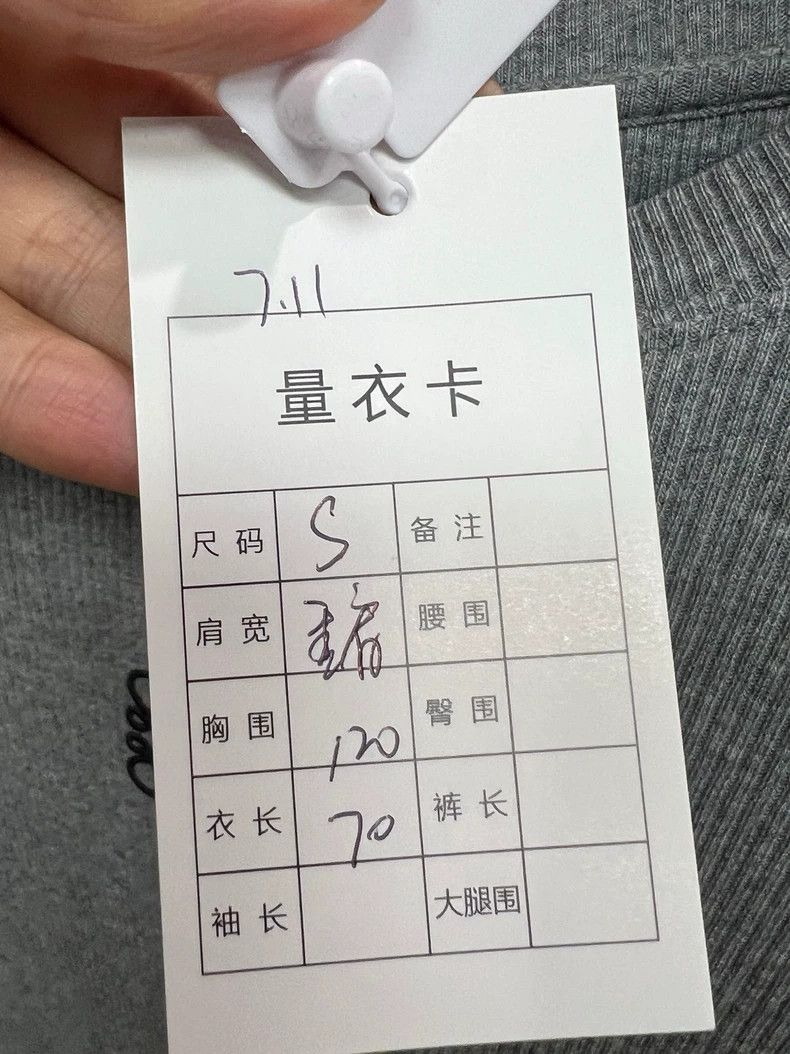 7.11
量衣卡
尺码 S 备注
肩宽 垂肩 腰围
胸围 120 臀围
衣长 70 裤长
袖长 大腿围